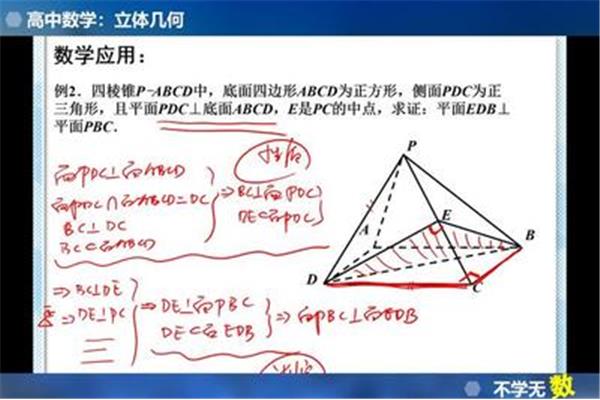 高中数学：立体几何
数学应用：
例2．四棱锥P-ABCD中，底面四边形ABCD为正方形，侧面PDC为正
三角形，且平面PDC⊥底面ABCD，E是PC的中点，求证：平面EDB⊥
平面PBC．
面PDC⊥面ABCD
面PDC∩面ABCD=DC
BC⊥DC
BC⊂面ABCD
⇒BC⊥面PDC
DE⊂面PDC
⇒BC⊥DE
⇒DE⊥PC
⇒DE⊥面PBC
DE⊂面EDB
⇒面PBC⊥面EDB
P
E
A
B
D
C
不学无数